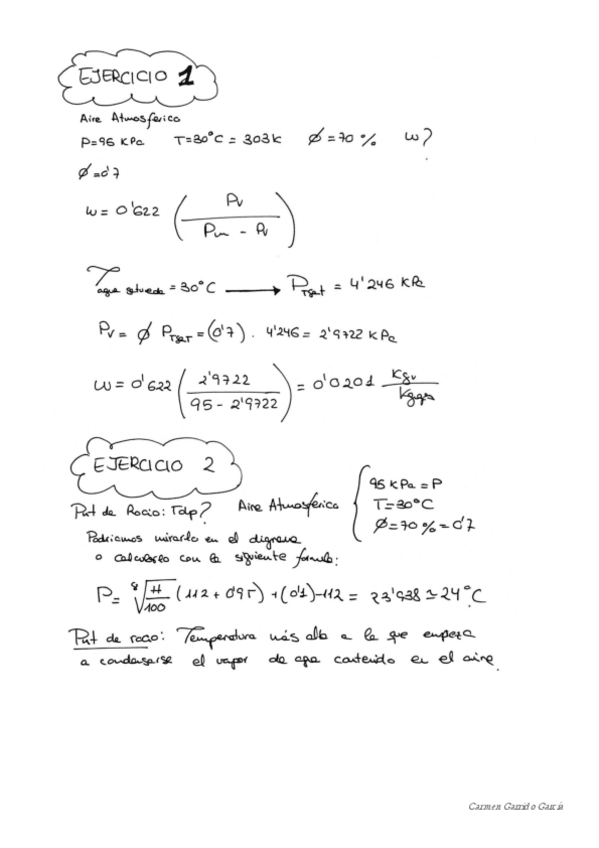 EJERCICIO 1
Aire Atmosferico
P=95 KPa T=30°C = 303K Ø=70% W?
Ø=0'7
W = 0'622 (Pv / (Pm - Pv))
Tagua saturada = 30°C → PTsat = 4'246 KPa
Pv = Ø PTsat = (0'7) . 4'246 = 2'9722 KPa
W = 0'622 (2'9722 / (95 - 2'9722)) = 0'0201 Kgv / Kgas
EJERCICIO 2
95 KPa = P
Punt de Rocio: Tdp? Aire Atmosferico T=30°C
Ø=70% = 0'7
Podriamos mirarlo en el digrama
o calcularlo con la siguiente formula:
P = ⁸√(H/100) (112 + 0'9T) + (0'1)-112 = 23'938 ≃ 24°C
Punt de rocio: Temperatura más alta a la que empeza
a condensarse el vapor de agua contenido en el aire.
Carmen Garrido García